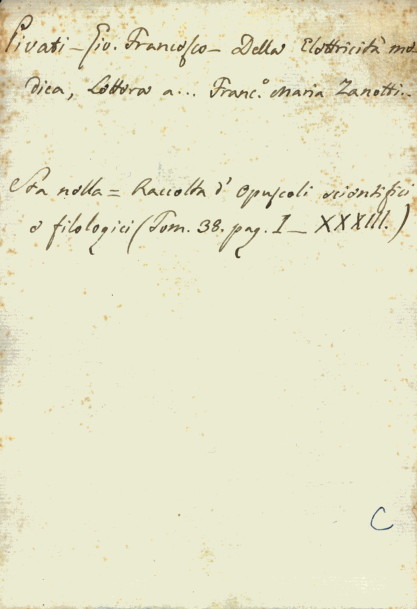 Pivati - Gio. Francesco - Della Elettricità me-
dica, Lettera a... Franc.° Maria Zanotti..
Sta nella = Raccolta d' Opuscoli scientifici
e filologici (Tom. 38. pag. I - XXXIII.)
C